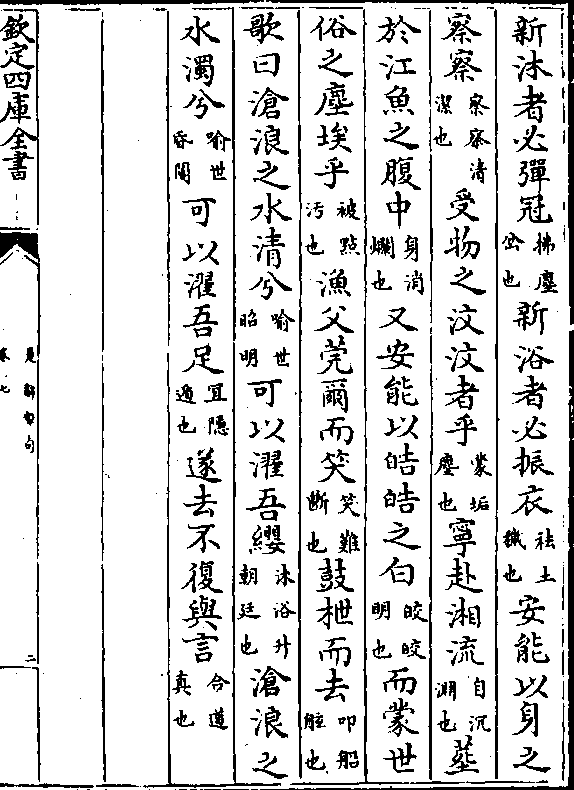 新沐者必彈冠拂塵坌也新浴者必振衣袪土穢也安能以身之
察察察察清潔也受物之汶汶者乎蒙垢塵也寧赴湘流自沉淵也塟
於江魚之腹中身消爛也又安能以皓皓之白皎皎明也而蒙世
俗之塵埃乎被點污也漁父莞爾而笑笑難斷也鼓枻而去叩船舷也
歌曰滄浪之水清兮喻世昭明可以濯吾纓沐浴升朝廷也滄浪之
水濁兮喻世昏闇可以濯吾足宜隱遁也遂去不復與言合道真也
欽定四庫全書
楚辭章句
卷七
二